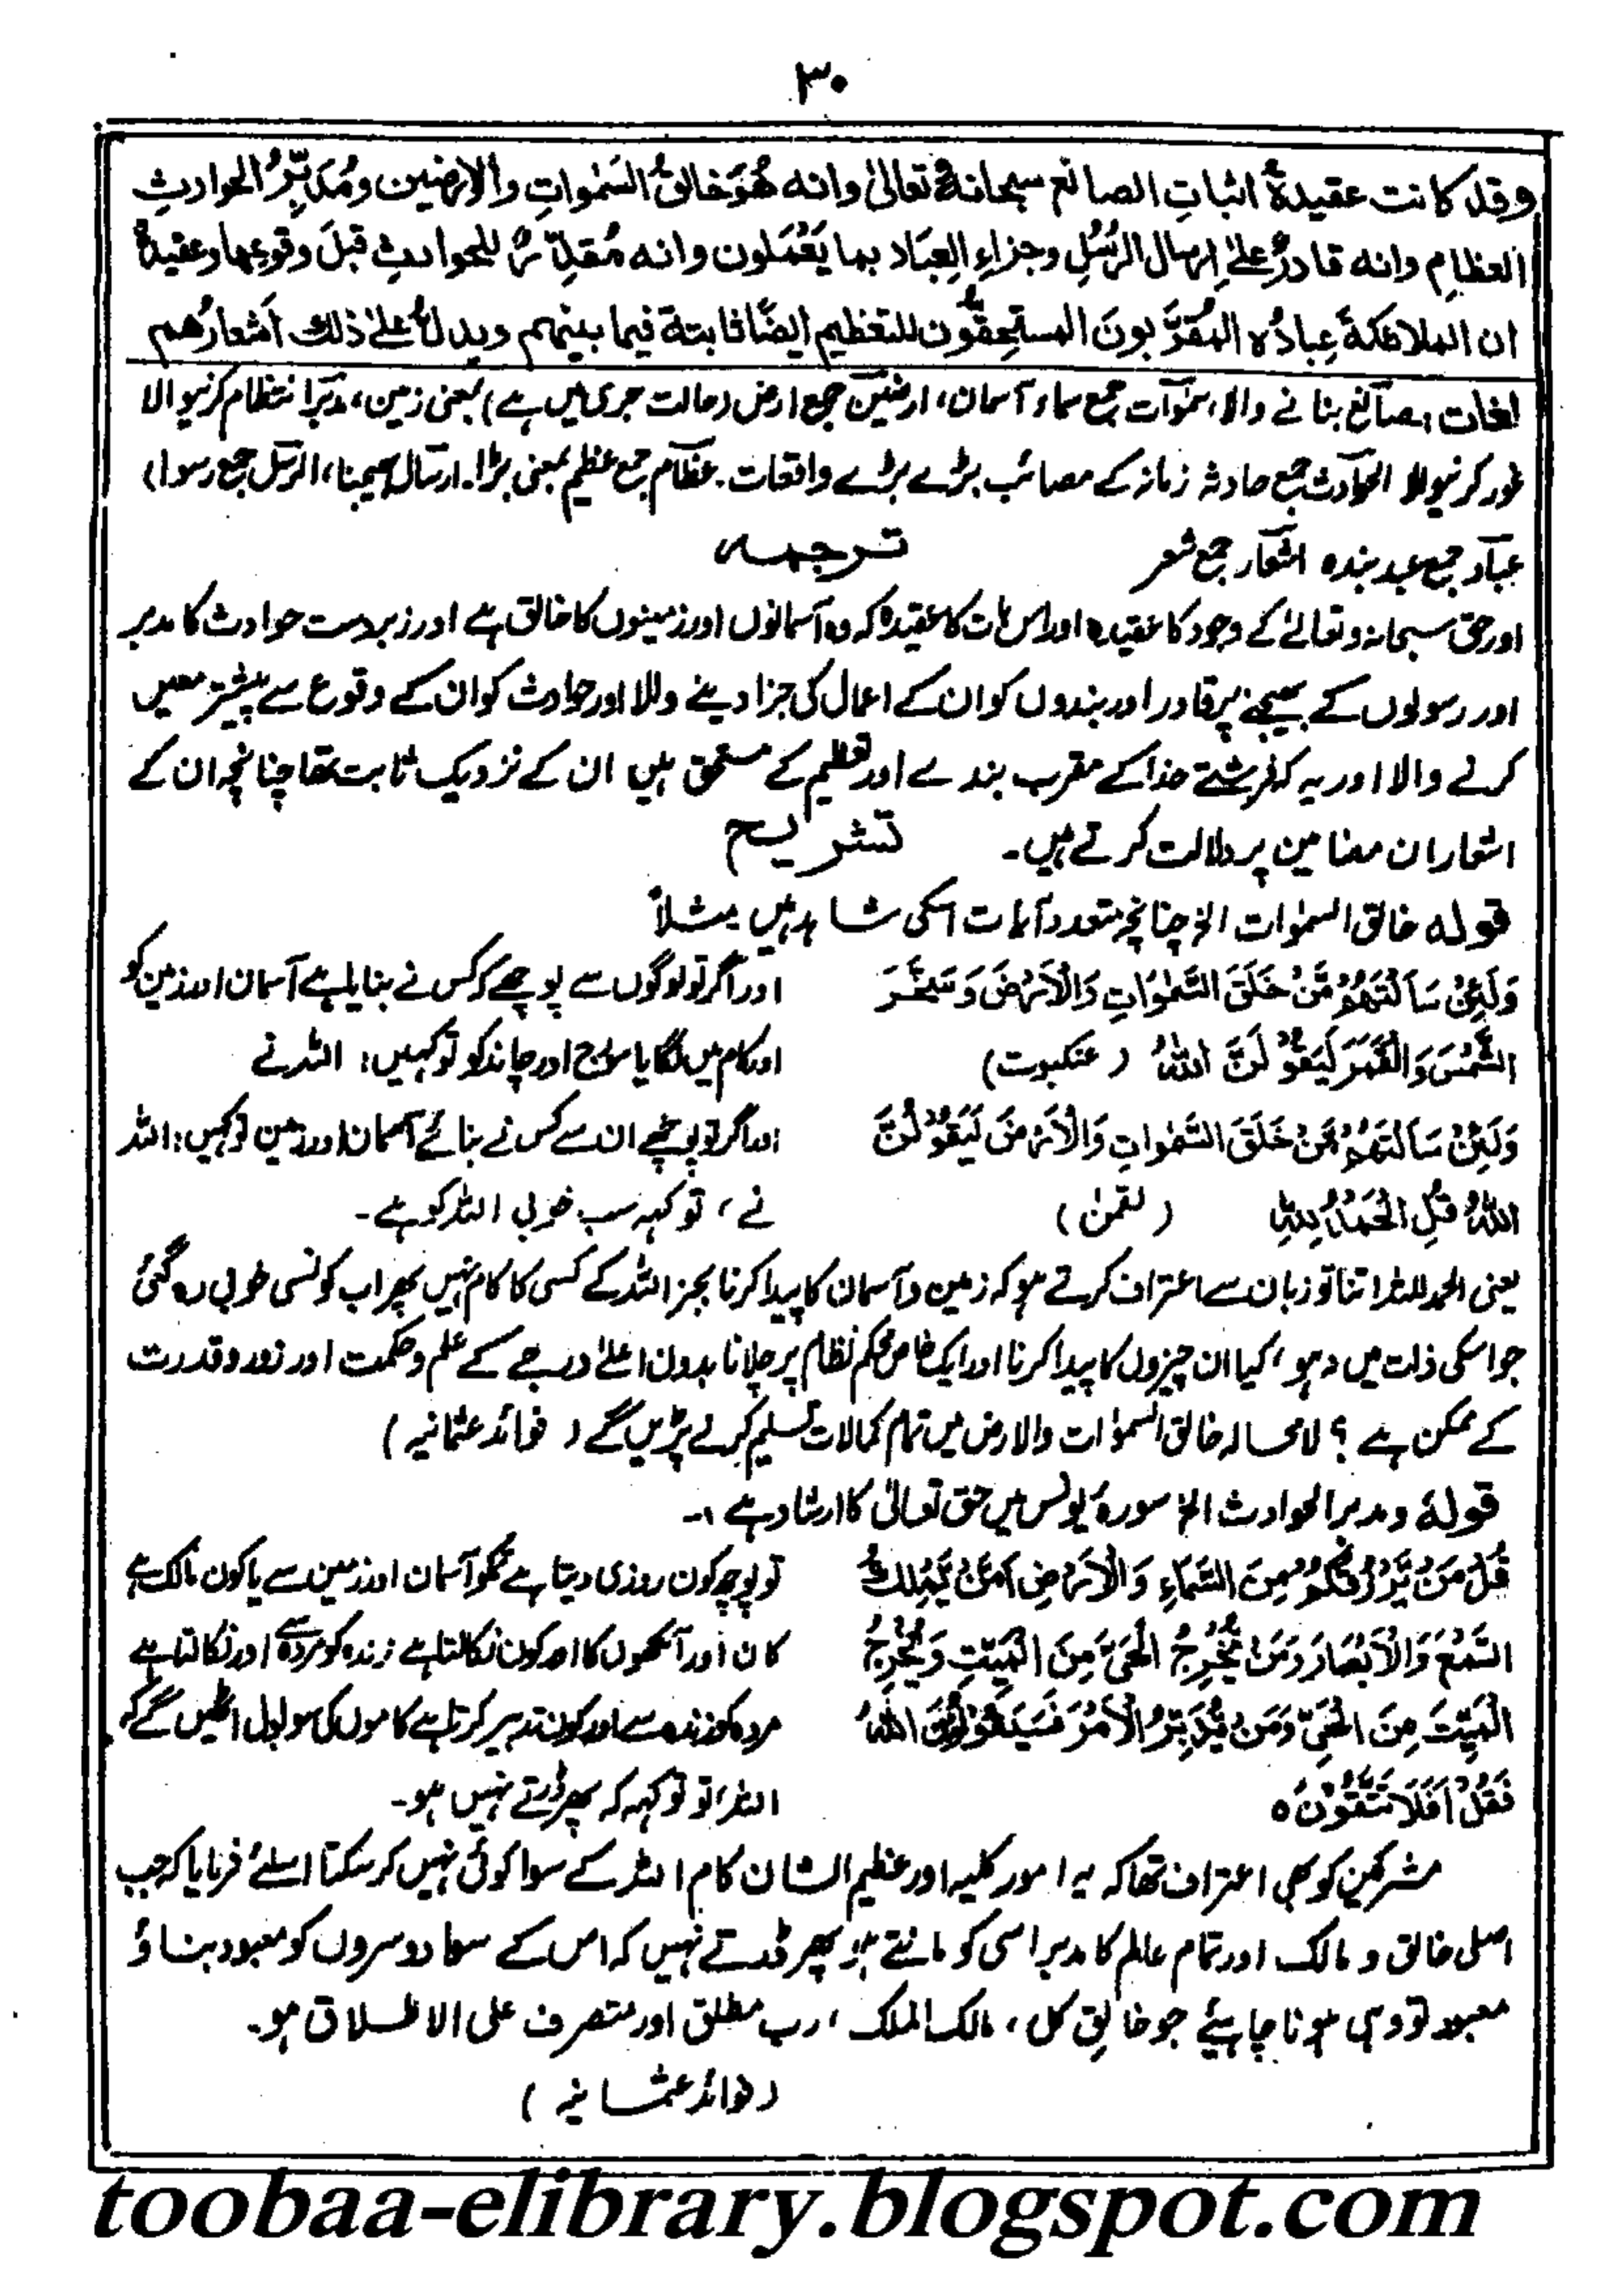 ۳۰
وقد كانت عقيدةُ اثباتِ الصانع سبحانهٗ تعالیٰ وانه هُوَ خالقُ السَمٰواتِ والارضين ومُدَبِّرُ الحوادثِ
العظامِ وانه قادرٌ علیٰ اِرسال الرُسُلِ وجزاءِ العِبَاد بما يَعْمَلون وانه مُقدِّرٌ للحوادثِ قبلَ وقوعِها وعقيدةُ
ان الملائكةَ عِبادُه المُقَرَّبونَ المستَحِقُّون للتعظيم ايضًا ثابتة فيما بينهم ويدلُّ علیٰ ذلك اَشعارُهم
لغات: صانع بنانے والا، سمٰوات جمع سماء آسمان، ارضین جمع ارض (حالت جری میں ہے) بمعنی زمین، مدبر انتظام کرنیوالا
غور کرنیوالا الحوادث جمع حادثہ زمانہ کے مصائب بڑے بڑے واقعات. عظام جمع عظیم بمعنی بڑا. ارسال بھیجنا، الرسل جمع رسول)
عباد جمع عبد بندہ اشعار جمع شعر
ترجمہ
اور حق سبحانہ وتعالیٰ کے وجود کا عقیدہ اور اس بات کا عقیدہ کہ وہ آسمانوں اور زمینوں کا خالق ہے اور زبردست حوادث کا مدبر
اور رسولوں کے بھیجنے پر قادر اور بندوں کو ان کے اعمال کی جزا دینے والا اور حوادث کو ان کے وقوع سے پیشتر معین
کرنے والا اور یہ کہ فرشتے خدا کے مقرب بندے اور تعظیم کے مستحق ہیں ان کے نزدیک ثابت تھا چنانچہ ان کے
اشعار ان مضامین پر دلالت کرتے ہیں۔
تشریح
قولہ خالق السمٰوات الخ چنانچہ متعدد آیات اسکی شاہد ہیں مثلاً
وَلَئِنْ سَاَلْتَهُمْ مَّنْ خَلَقَ السَّمٰوٰاتِ وَالْاَرْضَ وَسَخَّرَ
اور اگر تو لوگوں سے پوچھے کہ کس نے بنایا ہے آسمان اور زمین کو
الشَّمْسَ وَالْقَمَرَ لَيَقُوْلُنَّ اللّٰهُ (عنکبوت)
اور کام میں لگایا سورج اور چاند کو تو کہیں: اللہ نے
وَلَئِنْ سَاَلْتَهُمْ مَّنْ خَلَقَ السَّمٰوٰاتِ وَالْاَرْضَ لَيَقُوْلُنَّ
اور اگر تو پوچھے ان سے کس نے بنائے آسمان اور زمین تو کہیں: اللہ
اللّٰهُ قُلِ الْحَمْدُ لِلّٰهِ (لقمٰن)
نے، تو کہہ سب خوبی اللہ کو ہے۔
یعنی الحمد للہ اتنا تو زبان سے اعتراف کرتے ہو کہ زمین و آسمان کا پیدا کرنا بجز اللہ کے کسی کا کام نہیں پھر اب کونسی خوبی رہ گئی
جو اسکی ذات میں نہ ہو، کیا ان چیزوں کا پیدا کرنا اور ایک خاص محکم نظام پر چلانا بدون اعلیٰ درجے کے علم و حکمت اور زور و قدرت
کے ممکن ہے؟ لامحالہ خالق السمٰوات والارض میں تمام کمالات تسلیم کرنے پڑیں گے (فوائد عثمانیہ)
قولہٗ ومدبر الحوادث الخ سورۂ یونس میں حق تعالیٰ کا ارشاد ہے:۔
قُلْ مَنْ يَّرْزُقُكُمْ مِنَ السَّمَاءِ وَالْاَرْضِ اَمَّنْ يَّمْلِكُ
تو پوچھ کون روزی دیتا ہے تمکو آسمان اور زمین سے یا کون مالک ہے
السَّمْعَ وَالْاَبْصَارَ وَمَنْ يُّخْرِجُ الْحَيَّ مِنَ الْمَيِّتِ وَيُخْرِجُ
کان اور آنکھوں کا اور کون نکالتا ہے زندہ کو مردہ سے اور نکالتا ہے
الْمَيِّتَ مِنَ الْحَيِّ وَمَنْ يُّدَبِّرُ الْاَمْرَ فَسَيَقُوْلُوْنَ اللّٰهُ
مردہ کو زندہ سے اور کون تدبیر کرتا ہے کاموں کی سو بول اٹھیں گے کہ
فَقُلْ اَفَلَا تَتَّقُوْنَ ہ
اللہ، تو تو کہہ کہ پھر ڈرتے نہیں ہو۔
مشرکین کو بھی اعتراف تھا کہ یہ امور کلیہ اور عظیم الشان کام اللہ کے سوا کوئی نہیں کر سکتا اسلئے فرمایا کہ جب
اصل خالق و مالک اور تمام عالم کا مدبر اسی کو مانتے ہو پھر ڈرتے نہیں کہ اس کے سوا دوسروں کو معبود بناؤ
معبود تو وہی ہونا چاہیئے جو خالقِ کل، مالک الملک، رب مطلق اور متصرف علی الاطلاق ہو۔
(فوائد عثمانیہ)
toobaa-elibrary.blogspot.com